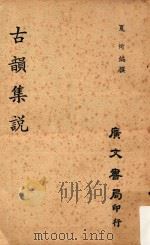 夏炘編撰
古韻集說
廣文書局印行